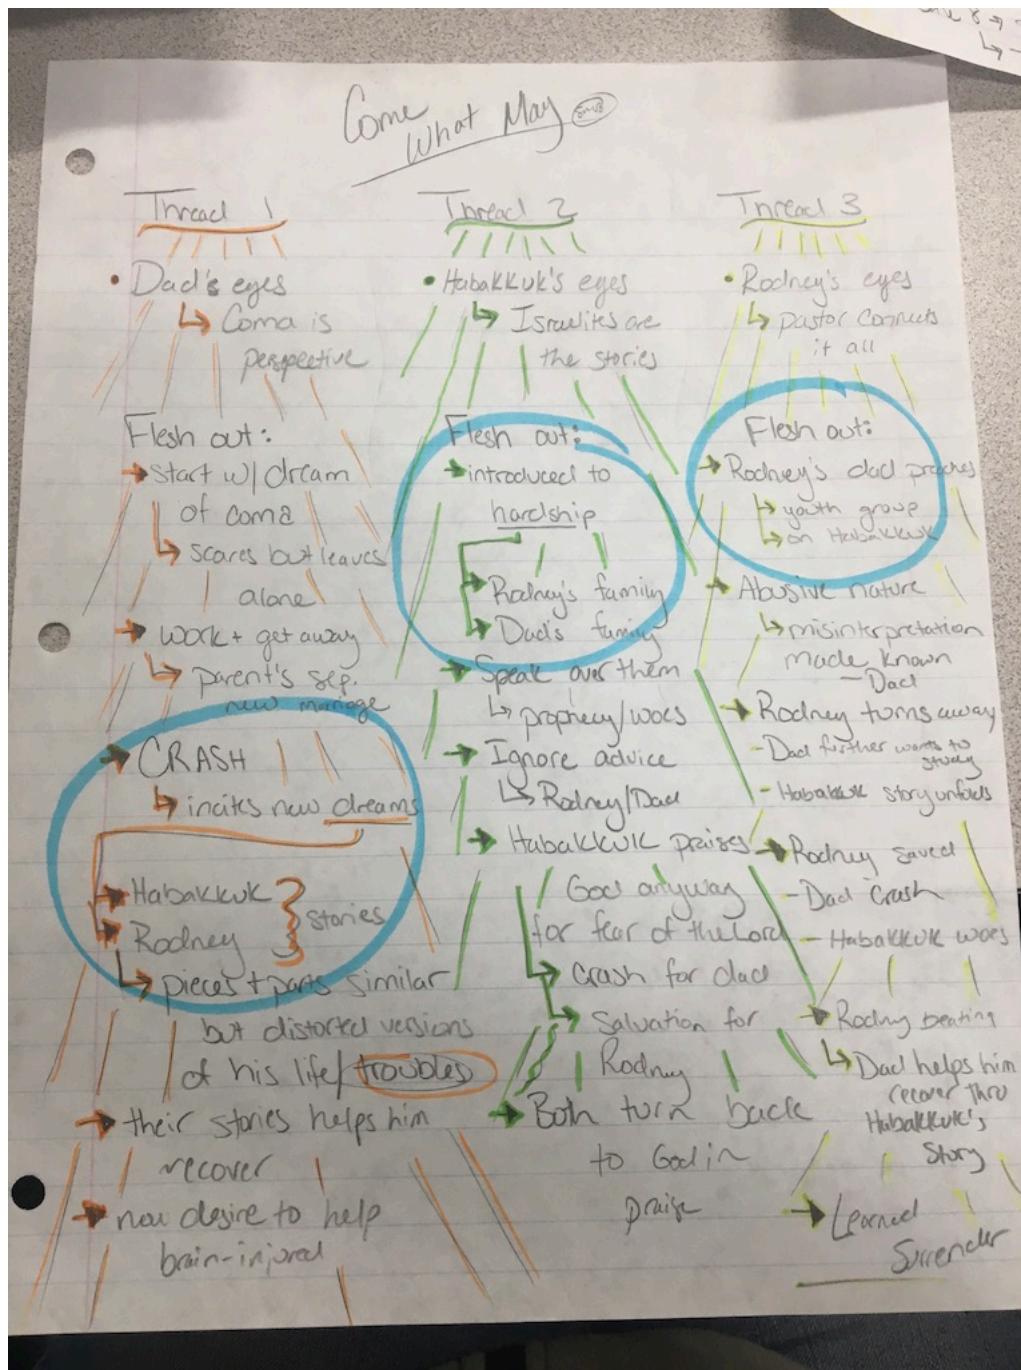 Come
What May
Thread 1
• Dad's eyes
↳ Coma is
perspective
Flesh out:
→ start w/ dream
of coma
↳ scares but leaves
alone
→ work + get away
↳ parent's sep.
new marriage
→ CRASH
↳ incites new dreams
→ Habakkuk
→ Rodney } stories
↳ pieces + parts similar
but distorted versions
of his life/troubles
→ their stories helps him
recover
→ now desire to help
brain-injured
Thread 2
• Habakkuk's eyes
↳ Israelites are
the stories
Flesh out:
→ introduced to
hardship
→ Rodney's family
→ Dad's family
→ Speak over them
↳ prophecy/woes
→ Ignore advice
↳ Rodney/Dad
→ Habakkuk praises
God anyway
for fear of the Lord
→ Crash for dad
→ Salvation for
Rodney
→ Both turn back
to God in
praise
Thread 3
• Rodney's eyes
↳ pastor connects
it all
Flesh out:
→ Rodney's dad preaches
↳ youth group
↳ on Habakkuk
→ Abusive nature
↳ misinterpretation
made known
- Dad
→ Rodney turns away
- Dad further wants to
study
- Habakkuk story unfolds
→ Rodney saved
- Dad crash
- Habakkuk woes
→ Rodney beating
↳ Dad helps him
recover thru
Habakkuk's
Story
→ Learned
Surrender